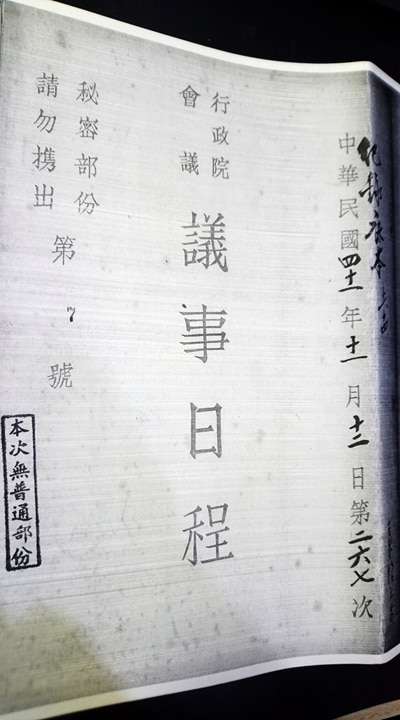 紀錄底本
中華民國四十一年十一月十二日第二六七次
行政院
會議
議事日程
秘密部份
請勿攜出
第7號
本次無普通部份